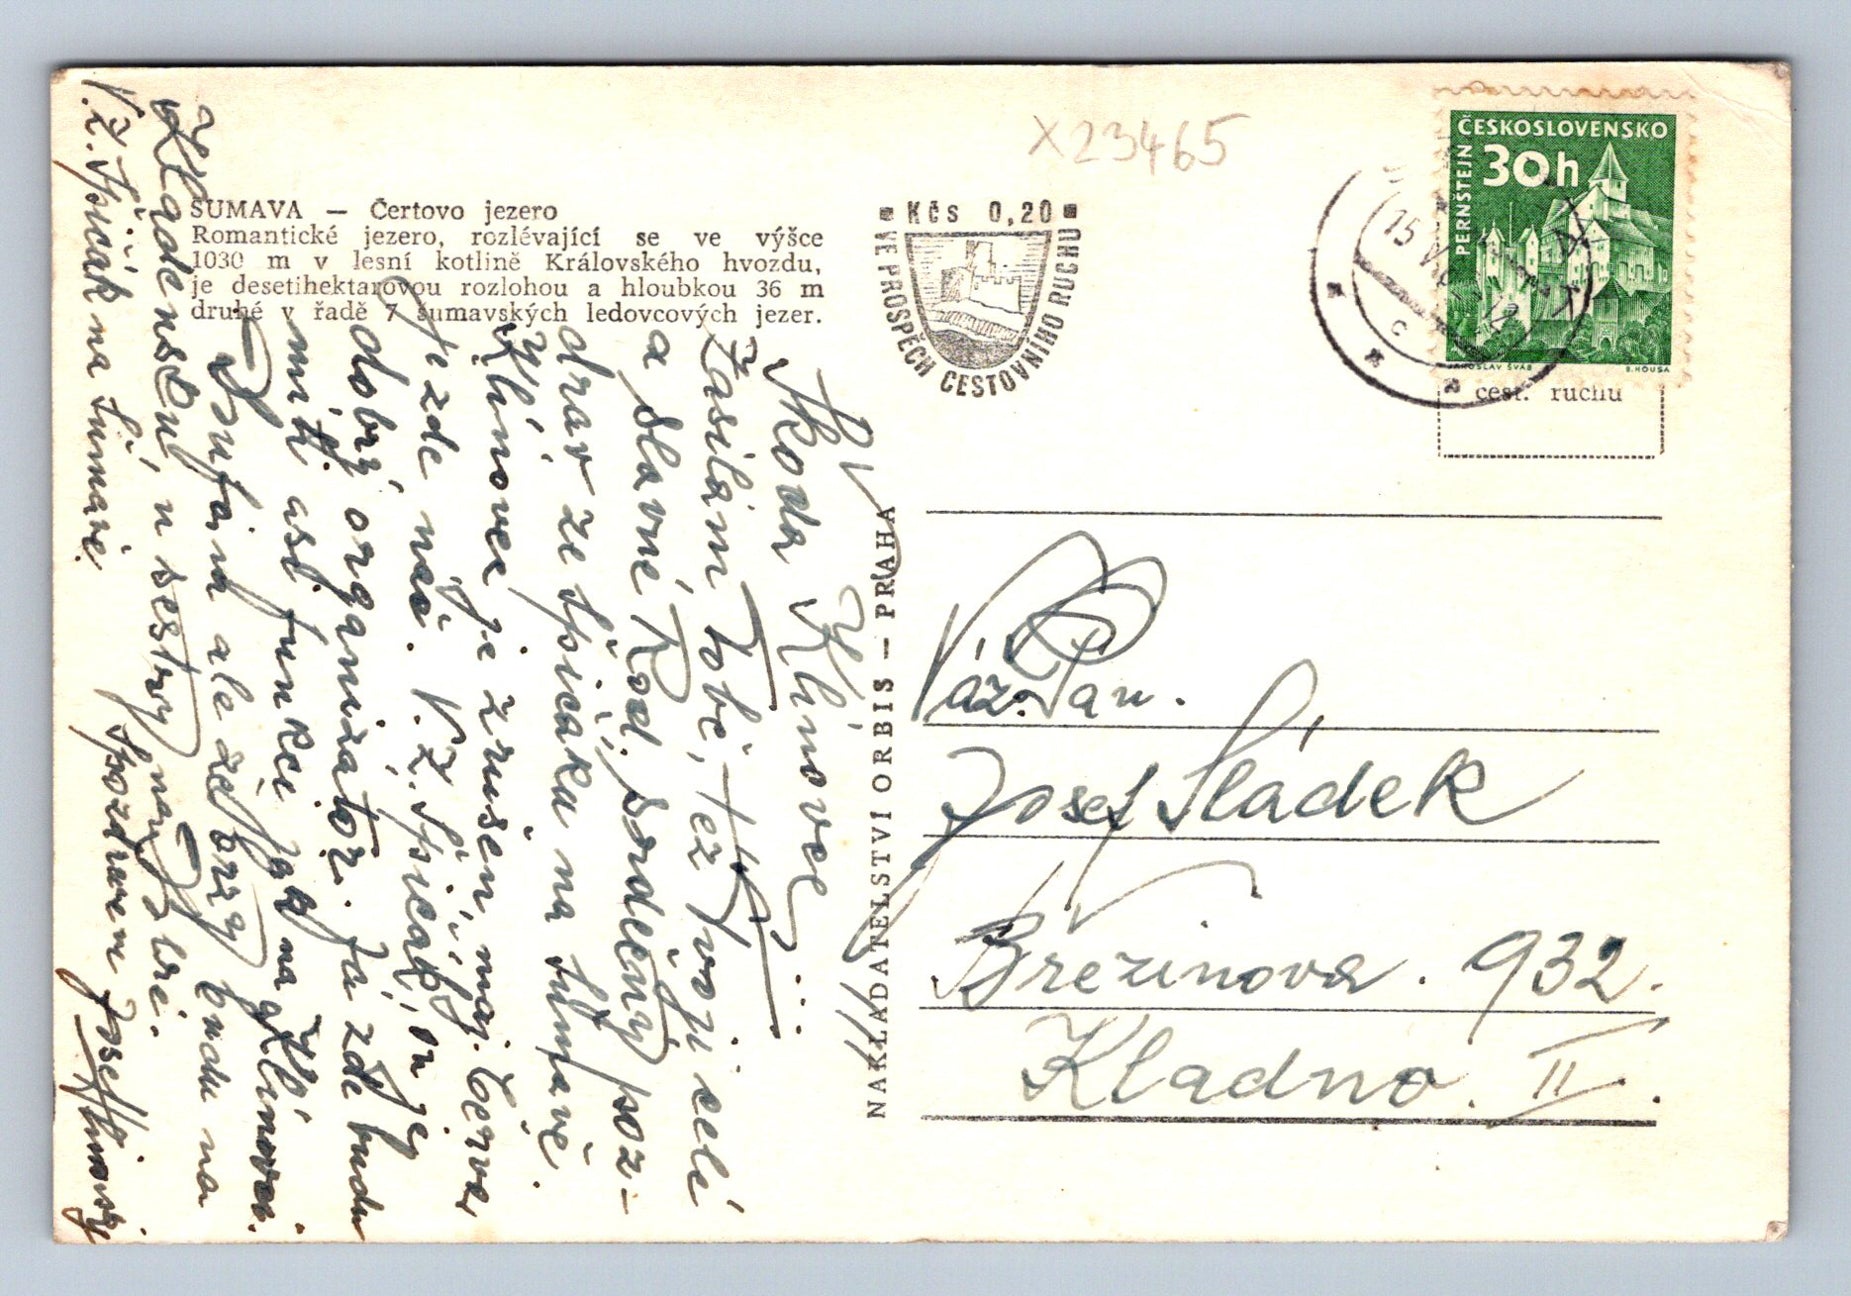 x23465
ŠUMAVA — Čertovo jezero
Romantické jezero, rozlévající se ve výšce
1030 m v lesní kotlině Královského hvozdu,
je desetihektarovou rozlohou a hloubkou 36 m
druhé v řadě 7 šumavských ledovcových jezer.
Kčs 0,20
VE PROSPĚCH CESTOVNÍHO RUCHU
ČESKOSLOVENSKO
30h
PERNŠTEJN
JAROSLAV ŠVÁB
B. HOUSA
15
cest. ruchu
NAKLADATELSTVÍ ORBIS — PRAHA
Škoda Klínovce
Zasílám Tobě, též Tvoji celé
a slavné Rod. srdečný poz-
drav ze Špičáku na Šumavě.
Klínovec je zrušen, maj. Červe
je zde náč. V.Z. Špičák, on je
dobrý organizátor. Já zde budu
míti asi funkci jak na Klínovci.
Doufám ale že brzy budu na
Kladensku, u sestry
V.Z. Špičák na Šumavě. Spozdravem Josef
Váž. Pan.
Josef Sládek
Březinova. 932.
Kladno. II.